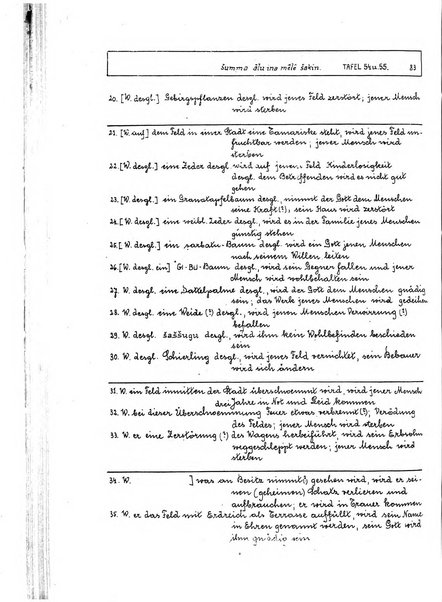 Summa âlu ina mêlê šakin. TAFEL 54 u. 55. 23
20. [W. desgl.] Gebirgspflanzen desgl. wird jenes Feld zerstört; jener Mensch
wird sterben
21. [W. auf] dem Feld in einer Stadt eine Tamariske steht, wird jenes Feld un-
fruchtbar werden; jener Mensch wird
sterben
22. [W. desgl.] eine Zeder desgl. wird auf jenem Feld Kinderlosigkeit
desgl. dem Betreffenden wird es nicht gut
gehen
23. [W. desgl.] ein Granatapfelbaum desgl., nimmt der Gott dem Menschen
seine Kraft(?), sein Haus wird zerstört
24. [W. desgl.] eine weibl. Zeder desgl., wird es in der Familie jenes Menschen
günstig stehen
25. [W. desgl.] ein sarbatu-Baum desgl. wird ein Gott jenen Menschen
nach seinem Willen leiten
26. [W. desgl. ein] GI-BU-Baum desgl., wird sein Gegner fallen und jener
Mensch wird wohlbehalten sein
27. W. desgl. eine Dattelpalme desgl., wird der Gott dem Menschen gnädig
sein; das Werk jenes Menschen wird gedeihen
28. W. desgl. eine Weide (?) desgl., wird jenen Menschen Verwirrung (?)
befallen
29. W. desgl. šaššugu desgl. wird ihm kein Wohlbefinden beschieden
sein
30. W. desgl. Schierling desgl., wird jenes Feld vernichtet, sein Bebauer
wird sich ändern
31. W. ein Feld inmitten der Stadt überschwemmt wird, wird jener Mensch
drei Jahre in Not und Leid kommen
32. W. bei dieser Überschwemmung Feuer etwas verbrennt(?), Verödung
des Feldes; jener Mensch wird sterben
33. W. er eine Zerstörung (?) des Wagens herbeiführt, wird sein Erbsohn
weggeschleppt werden; jener Mensch wird
sterben
34. W. ] was an Besitz nimmt(?) gesehen wird, wird er sei-
nen (geheimen) Schatz verlieren und
aufbrauchen; er wird in Trauer kommen
35. W. er das Feld mit Erdreich als Terrasse auffüllt, wird sein Name
in Ehren genannt werden, sein Gott wird
ihm gnädig sein